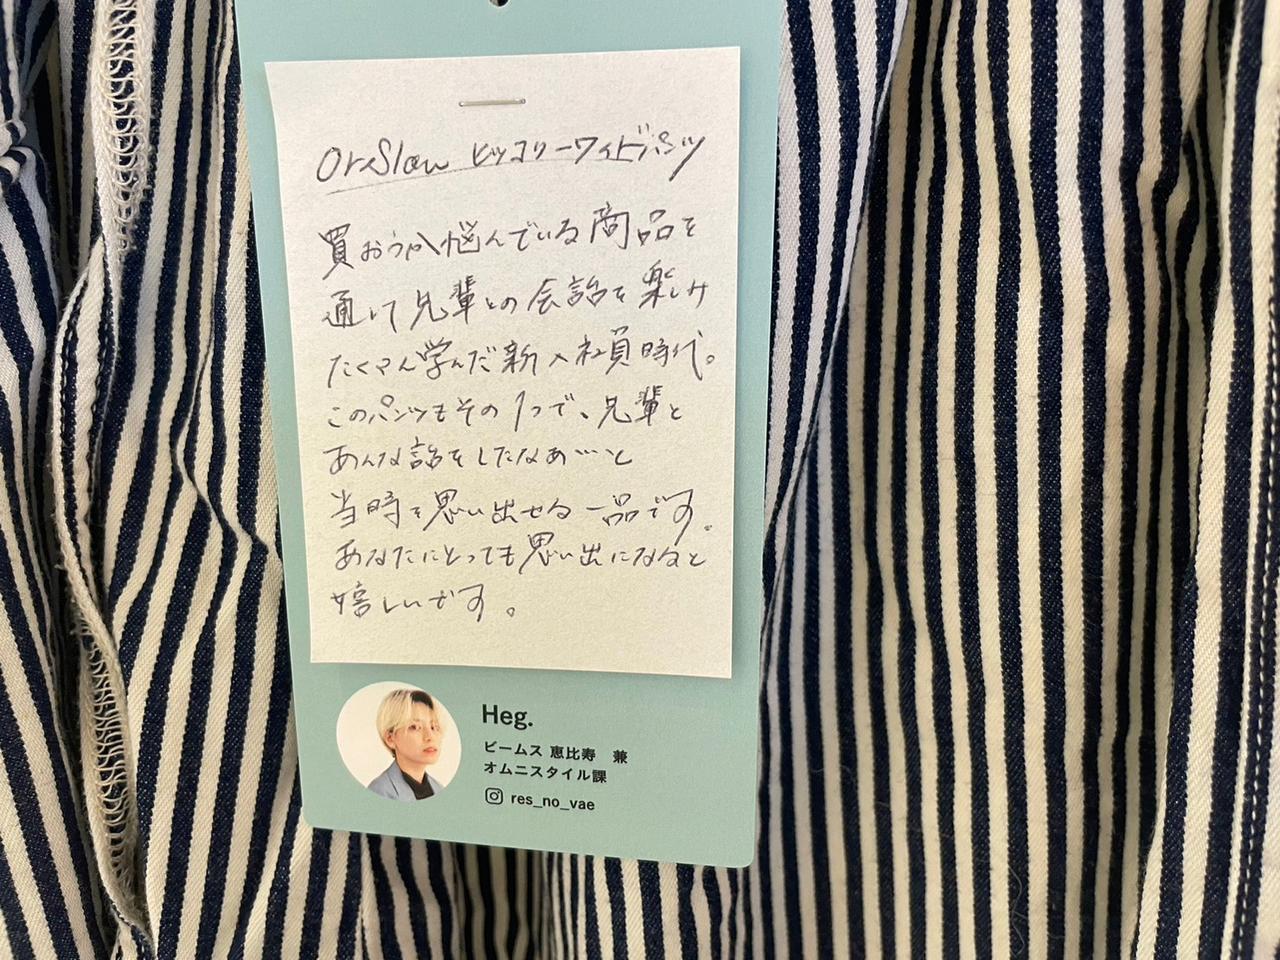 OrSlow ヒッコリーワイドパンツ
買おうか悩んでいる商品を
通して先輩との会話を楽しみ
たくさん学んだ新入社員時代。
このパンツもその1つで、先輩と
あんな話をしたなあ……と
当時を思い出せる一品です。
あなたにとっても思い出になると
嬉しいです。
Heg.
ビームス 恵比寿 兼
オムニスタイル課
res_no_vae